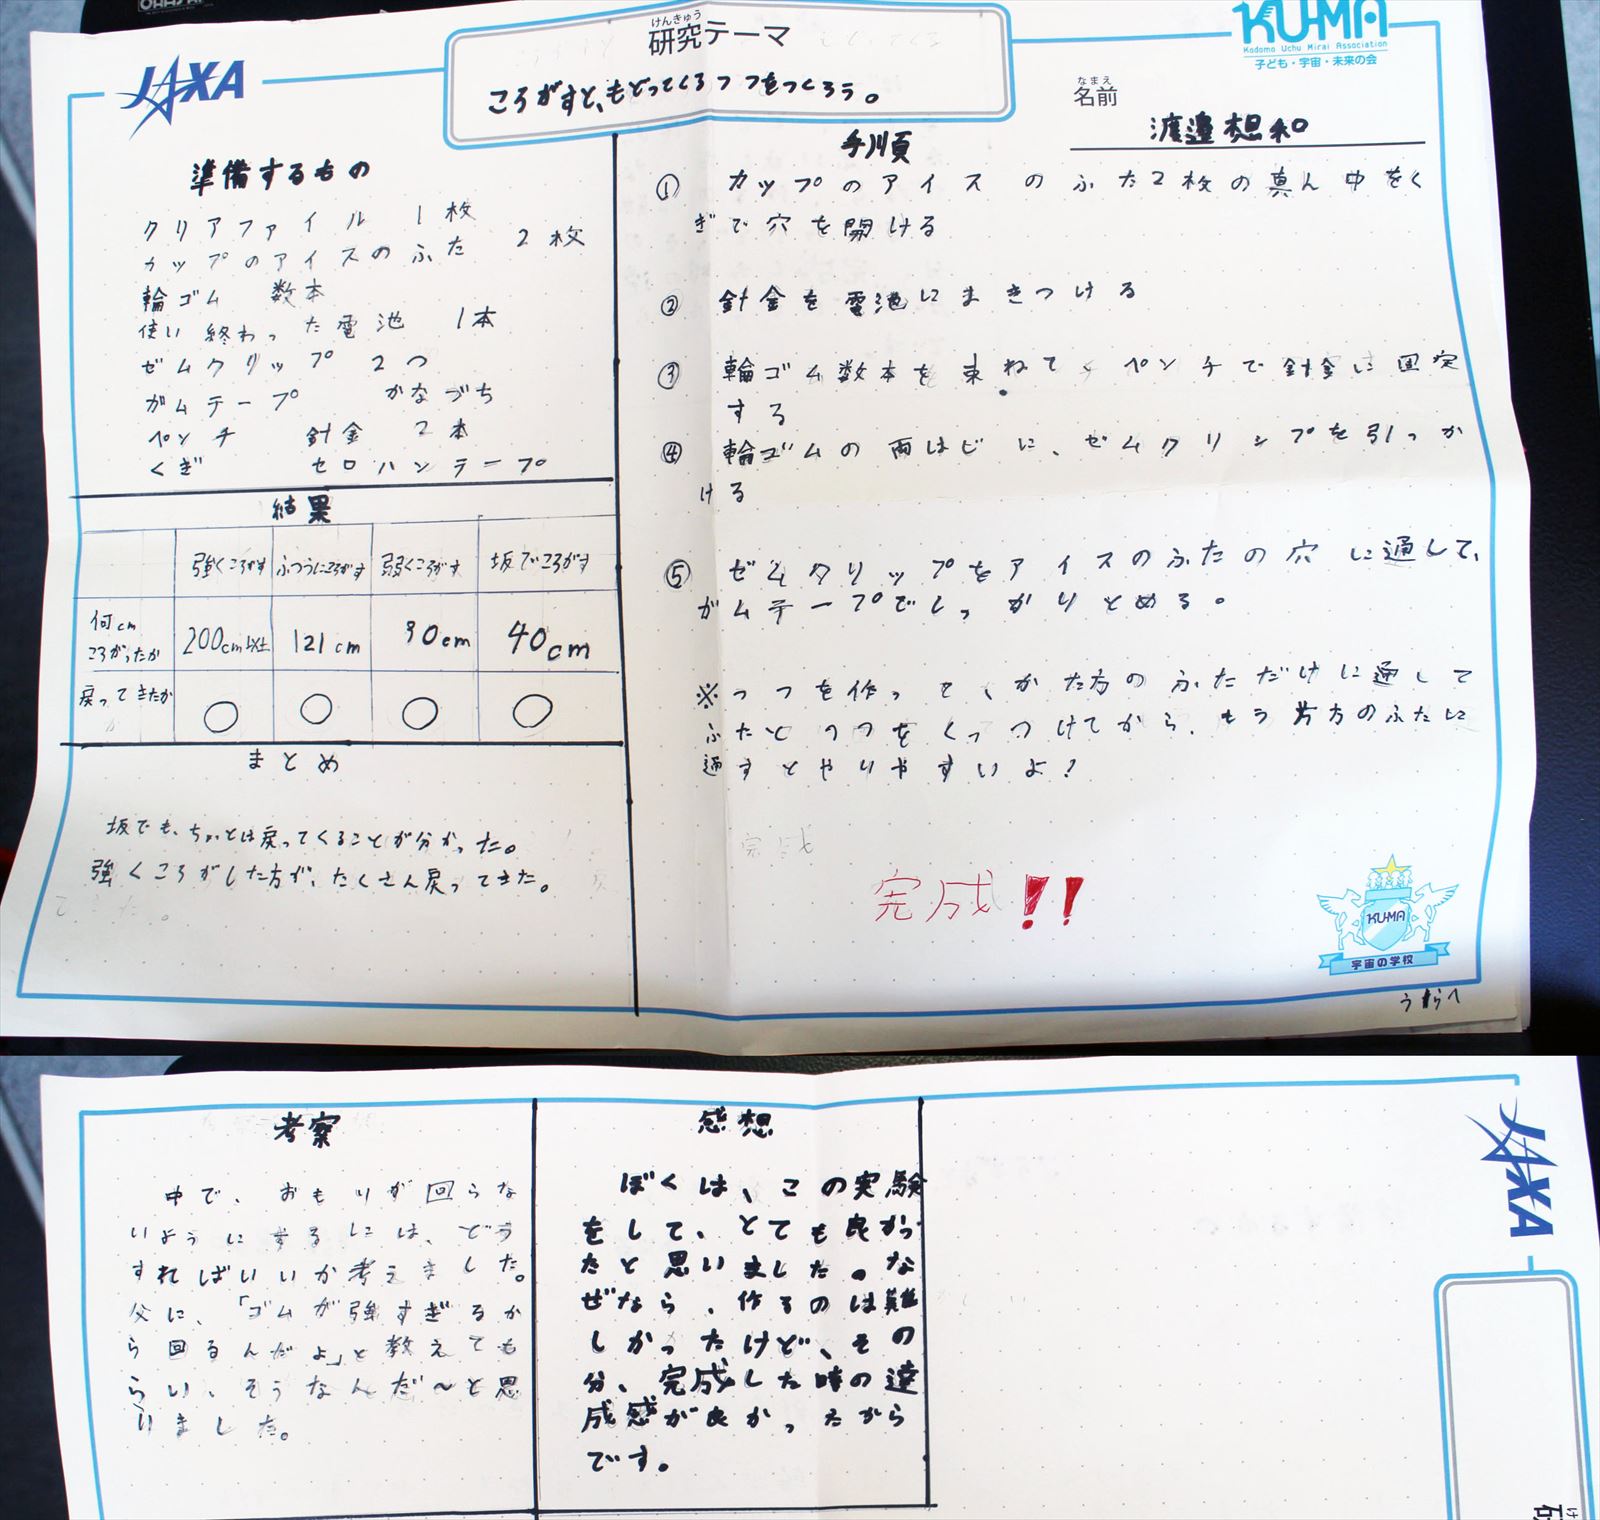 JAXA
けんきゅう
研究テーマ
ころがすと、もどってくるつつをつくろう。
KU-MA
Kodomo Uchu Mirai Association
子ども・宇宙・未来の会
なまえ
名前
渡邉想和
準備するもの
クリアファイル 1枚
カップのアイスのふた 2枚
輪ゴム 数本
使い終わった電池 1本
ゼムクリップ 2つ
ガムテープ かなづち
ペンチ 針金 2本
くぎ セロハンテープ
結果
強くころがす ふつうにころがす 弱くころがす 坂でころがす
何cm
ころがったか 200cm以上 121cm 30cm 40cm
戻ってきたか ○ ○ ○ ○
まとめ
坂でも、ちょっとは戻ってくることが分かった。
強くころがした方が、たくさん戻ってきた。
手順
① カップのアイスのふた2枚の真ん中をく
ぎで穴を開ける
② 針金を電池にまきつける
③ 輪ゴム数本を束ねて、ペンチで針金に固定
する
④ 輪ゴムの両はじに、ゼムクリップを引っか
ける
⑤ ゼムクリップをアイスのふたの穴に通して、
ガムテープでしっかりとめる。
※つつを作って、かた方のふただけに通して
ふたとつつをくっつけてから、もう片方のふたに
通すとやりやすいよ!
完成
完成!!
KU-MA
宇宙の学校
うらへ
考察
中で、おもりが回らな
いようにするには、どう
すればいいか考えました。
父に、「ゴムが強すぎるか
ら回るんだよ」と教えても
らい、そうなんだ～と思
いました。
感想
ぼくは、この実験
をして、とても良かっ
たと思いました。な
ぜなら、作るのは難
しかったけど、その
分、完成した時の達
成感が良かったから
です。
JAXA